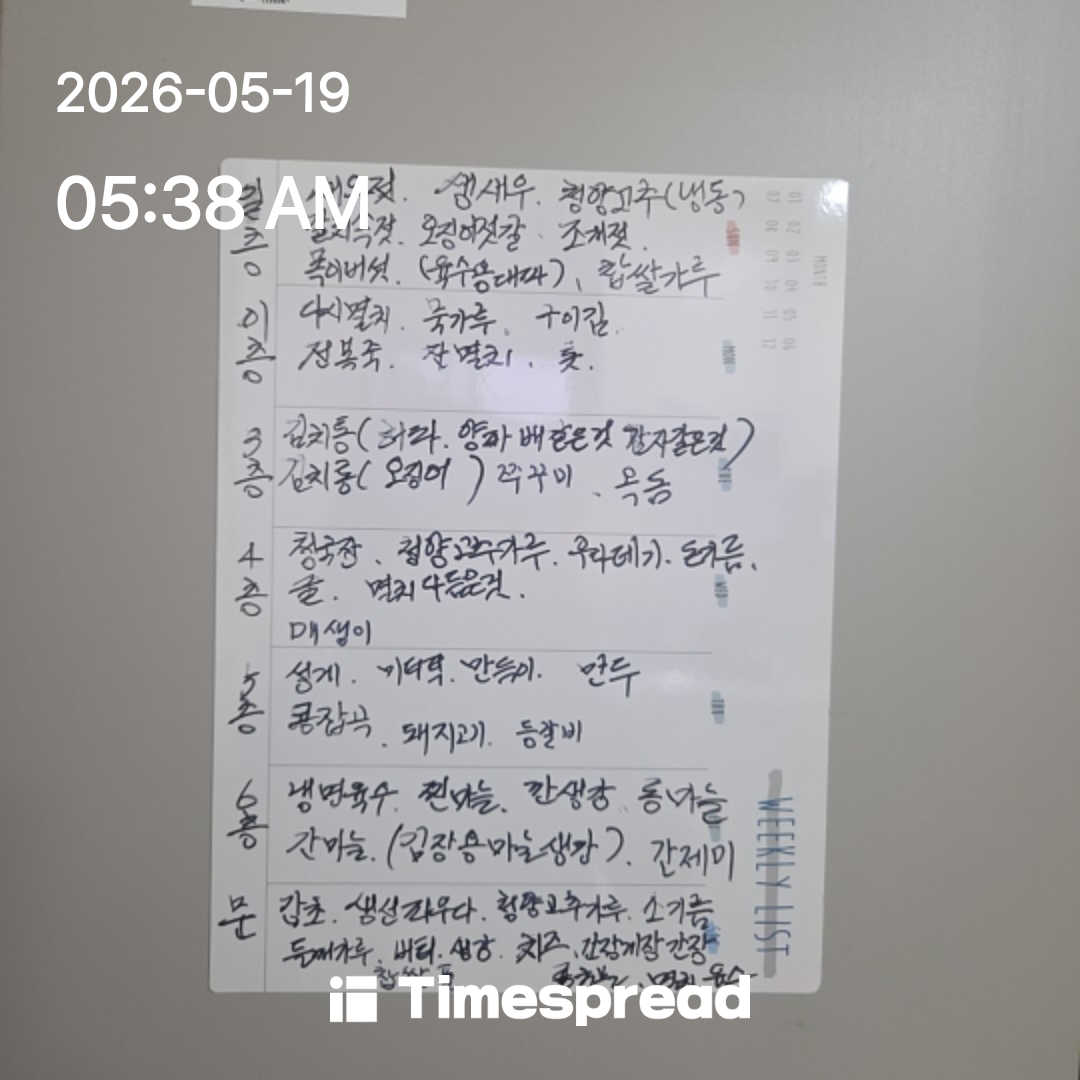 2026-05-19
05:38 AM
일층 새우젓. 생새우. 청양고추(냉동)
오징어젓갈. 조개젓.
목이버섯. (육수용대파), 찹쌀가루
이층 다시멸치. 묵가루. 구이김.
전복죽. 잔멸치. 톳.
3층 김치통( 양파 배 같은것 감자같은것)
김치통( 오징어 ) 쭈꾸미. 옥돔
4층 청국장. 청양고추가루. 우다데기.
굴. 멸치 다듬은것.
매생이
5층 성게. 미더덕. 만득이. 만두
콩잡곡. 돼지고기. 등갈비
6층 냉면육수. 찐마늘. 깐생강. 통마늘
간마늘. (김장용마늘생강). 간제미
문 감초. 생선. 청양고추가루. 소기름
들깨가루. 버터. 생강. 치즈. 간장게장간장
멸치육수
MONTH
01 02 03 04 05 06
07 08 09 10 11 12
SUN
WEEKLY LIST
Timespread